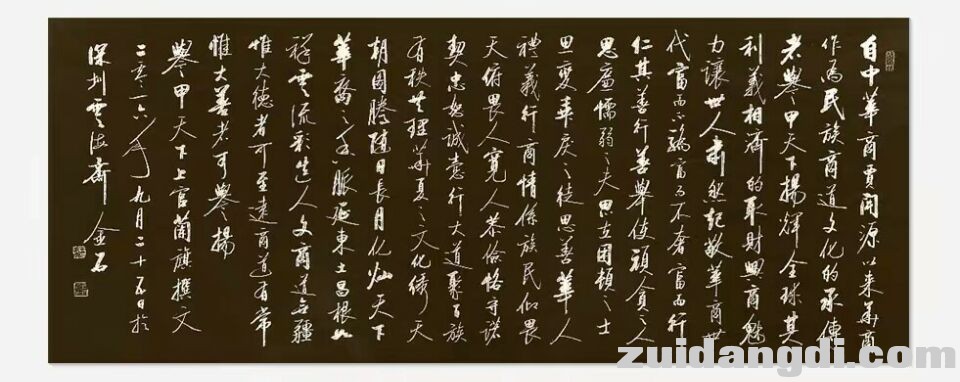 自中華商賈開源以来華商
作為民族商道文化的承傳
者譽甲天下揚輝全球其
利義相濟的取財興商魅
力讓世人肅然起敬華商世
代富而不驕富而不奢富而行
仁其善行善舉使頑貪之人
思廉懦弱之夫思立困頓之士
思變暴戾之徒思善華人
禮義行商情係族民仰畏
天俯畏人寬人恭儉恪守諾
契忠恕誠意行大道聚百族
有秩理華夏之文化綉天
朝國騰隨日長月化灿天下
華裔之脈延東土昌根
雲流彩人文商道無疆
惟大德者可至遠商道有常
惟大善者可譽揚
譽甲天下上官蘭旗撰文
二零一六年九月二十五日於
深圳雲海齋金石
zuidangdi.com